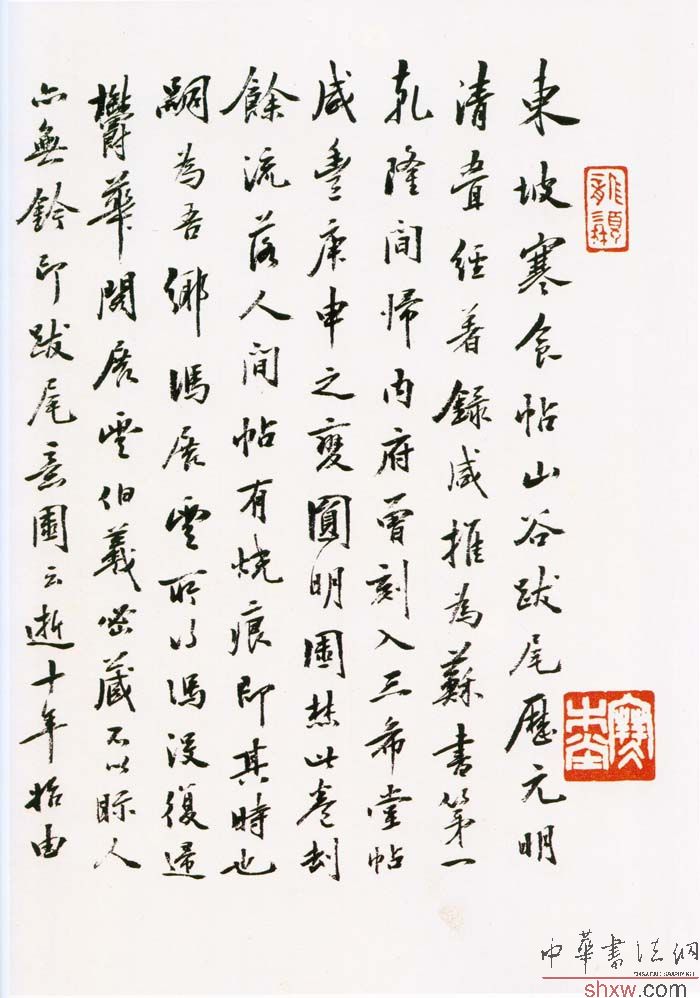 東坡寒食帖山谷跋尾歷元明
清疊經著錄咸推為蘇書第一
乾隆間歸內府曾刻入三希堂帖
咸豐庚申之變圓明園焚此卷劫
餘流落人間帖有燒痕即其時也
嗣為吾鄉馮展雲所得馮沒復歸
鬱華閣展雲伯羲密藏不以眎人
亦無鈐印跋尾意園云逝十年始由
中華書法網
shxw.com